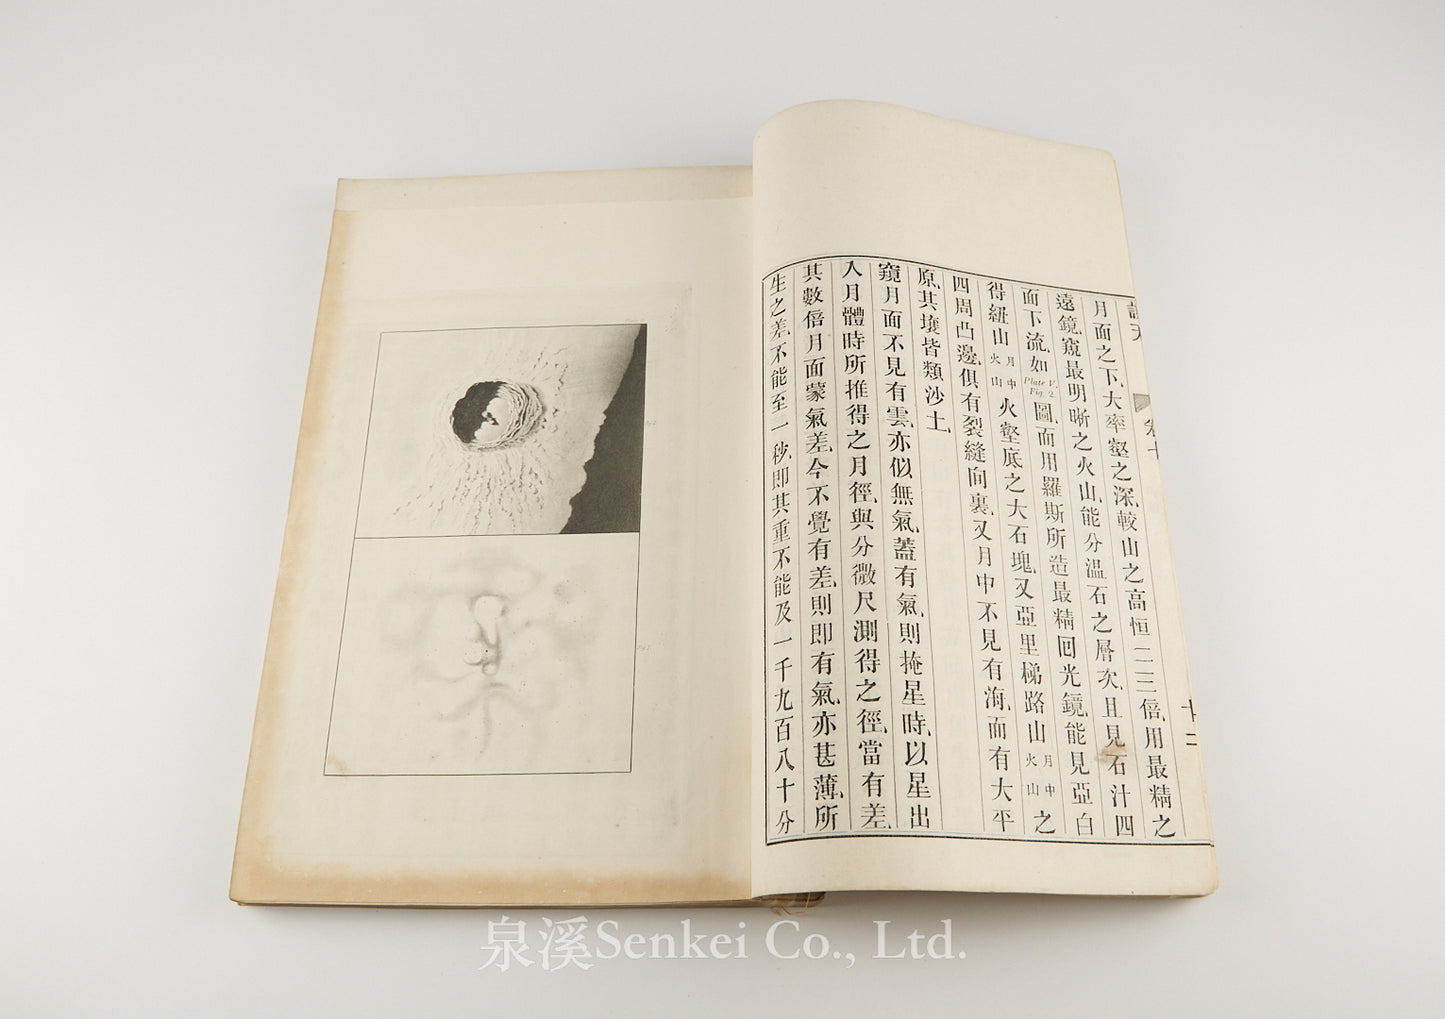 月面之下、大率壑之深、較山之高恒二三倍、用最精之
遠鏡、窺最明晰之火山、能分溫石之層次、且見石汁四
面下流、如Plate V. Fig. 2.圖、而用羅斯所造最精回光鏡、能見亞白
得紐山月中火山火壑底之大石塊、又亞里梯路山月中火山之
四周凸邊、俱有裂縫向裏、又月中不見有海、而有大平
原、其壤皆類沙土、
窺月面不見有雲、亦似無氣、蓋有氣、則掩星時、以星出
入月體時所推得之月徑、與分微尺測得之徑、當有差、
其數倍月面蒙氣差、今不覺有差、則即有氣、亦甚薄、所
生之差、不能至一秒、即其重不能及一千九百八十分
卷七
十二
泉溪Senkei Co., Ltd.